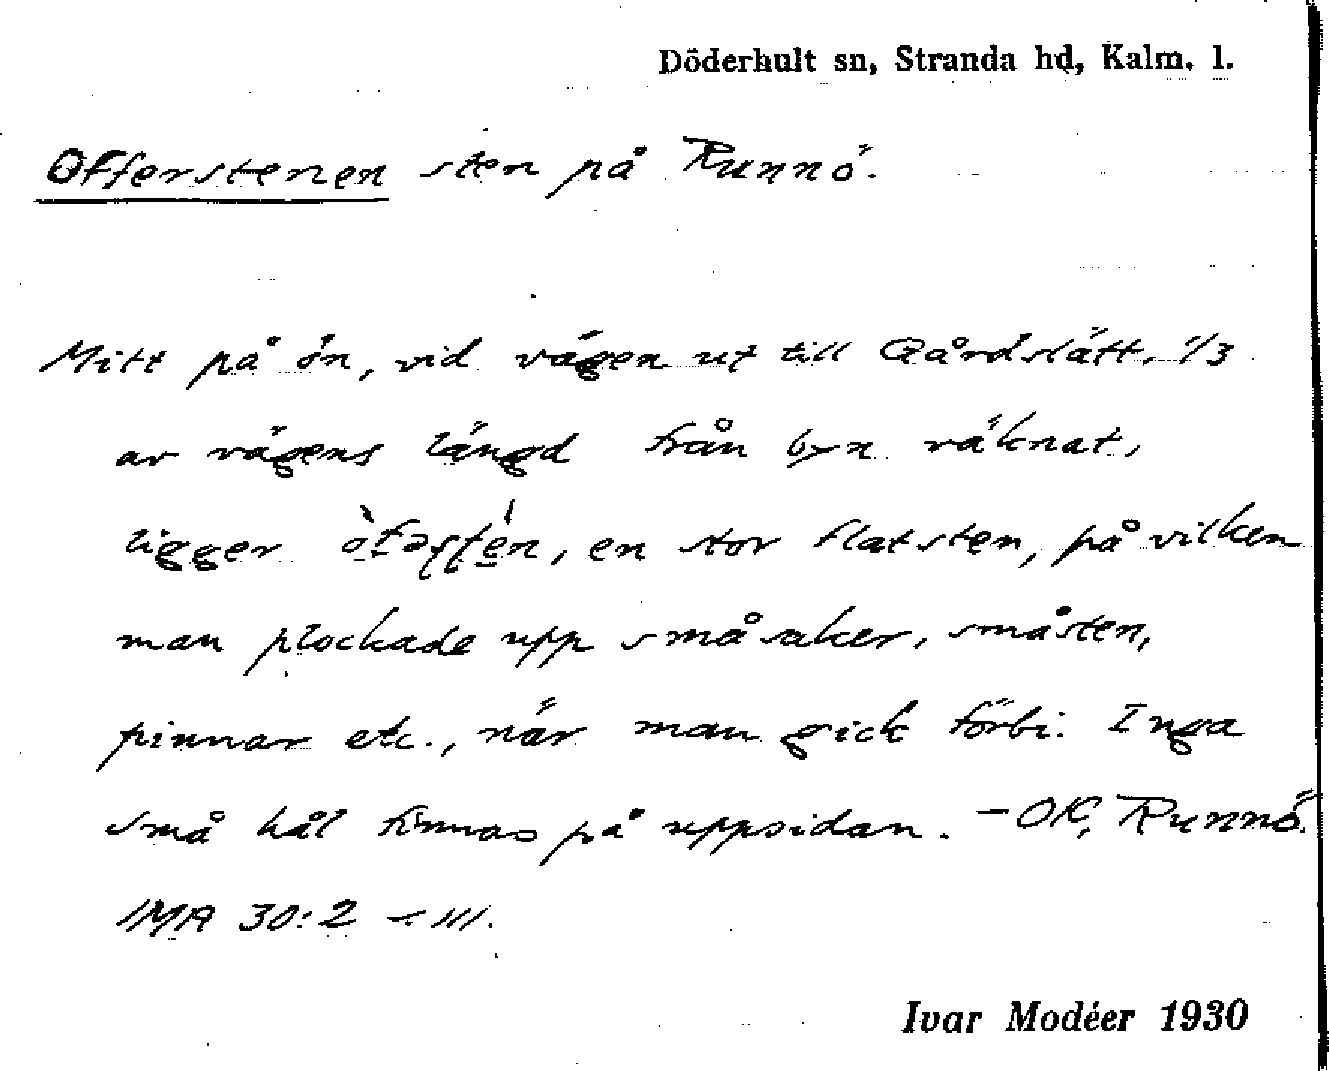 Döderhult sn, Stranda hd, Kalm. l.
Offerstenen sten på Runnö.
Mitt på ön, vid vägen ut till Gårdslätt, 1/3
av vägens längd från byn räknat,
ligger en stor flat sten, på vilken
man plockade upp småsaker, småsten,
pinnar etc., när man gick förbi. Inga
små hål finnas på uppsidan. – OK, Runnö.
IMA 30:2
Ivar Modéer 1930